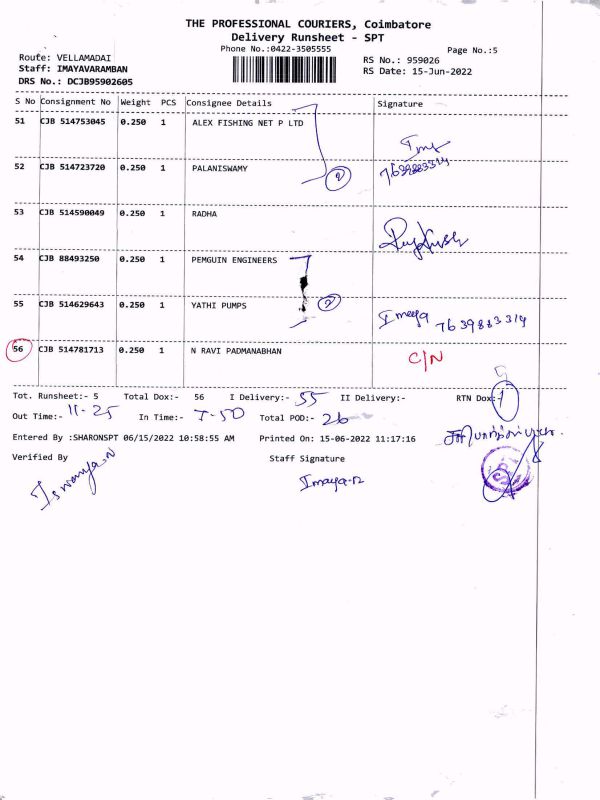 THE PROFESSIONAL COURIERS, Coimbatore
Delivery Runsheet - SPT
Phone No.:0422-3505555
Page No.:5
Route: VELLAMADAI
RS No.: 959026
Staff: IMAYAVARAMBAN
RS Date: 15-Jun-2022
DRS No.: DCJB95902605
S No Consignment No Weight PCS Consignee Details Signature
51 CJB 514753045 0.250 1 ALEX FISHING NET P LTD
52 CJB 514723720 0.250 1 PALANISWAMY
2 7639883314
53 CJB 514590049 0.250 1 RADHA
54 CJB 88493250 0.250 1 PEMGUIN ENGINEERS
55 CJB 514629643 0.250 1 YATHI PUMPS
2 Imaya 7639883314
56 CJB 514781713 0.250 1 N RAVI PADMANABHAN
C/N
Tot. Runsheet:- 5 Total Dox:- 56 I Delivery:- 55 II Delivery:- RTN Dox: 1
Out Time:- 11-25 In Time:- 7-50 Total POD:- 26
Entered By :SHARONSPT 06/15/2022 10:58:55 AM Printed On: 15-06-2022 11:17:16
Verified By Staff Signature
Imaya-n